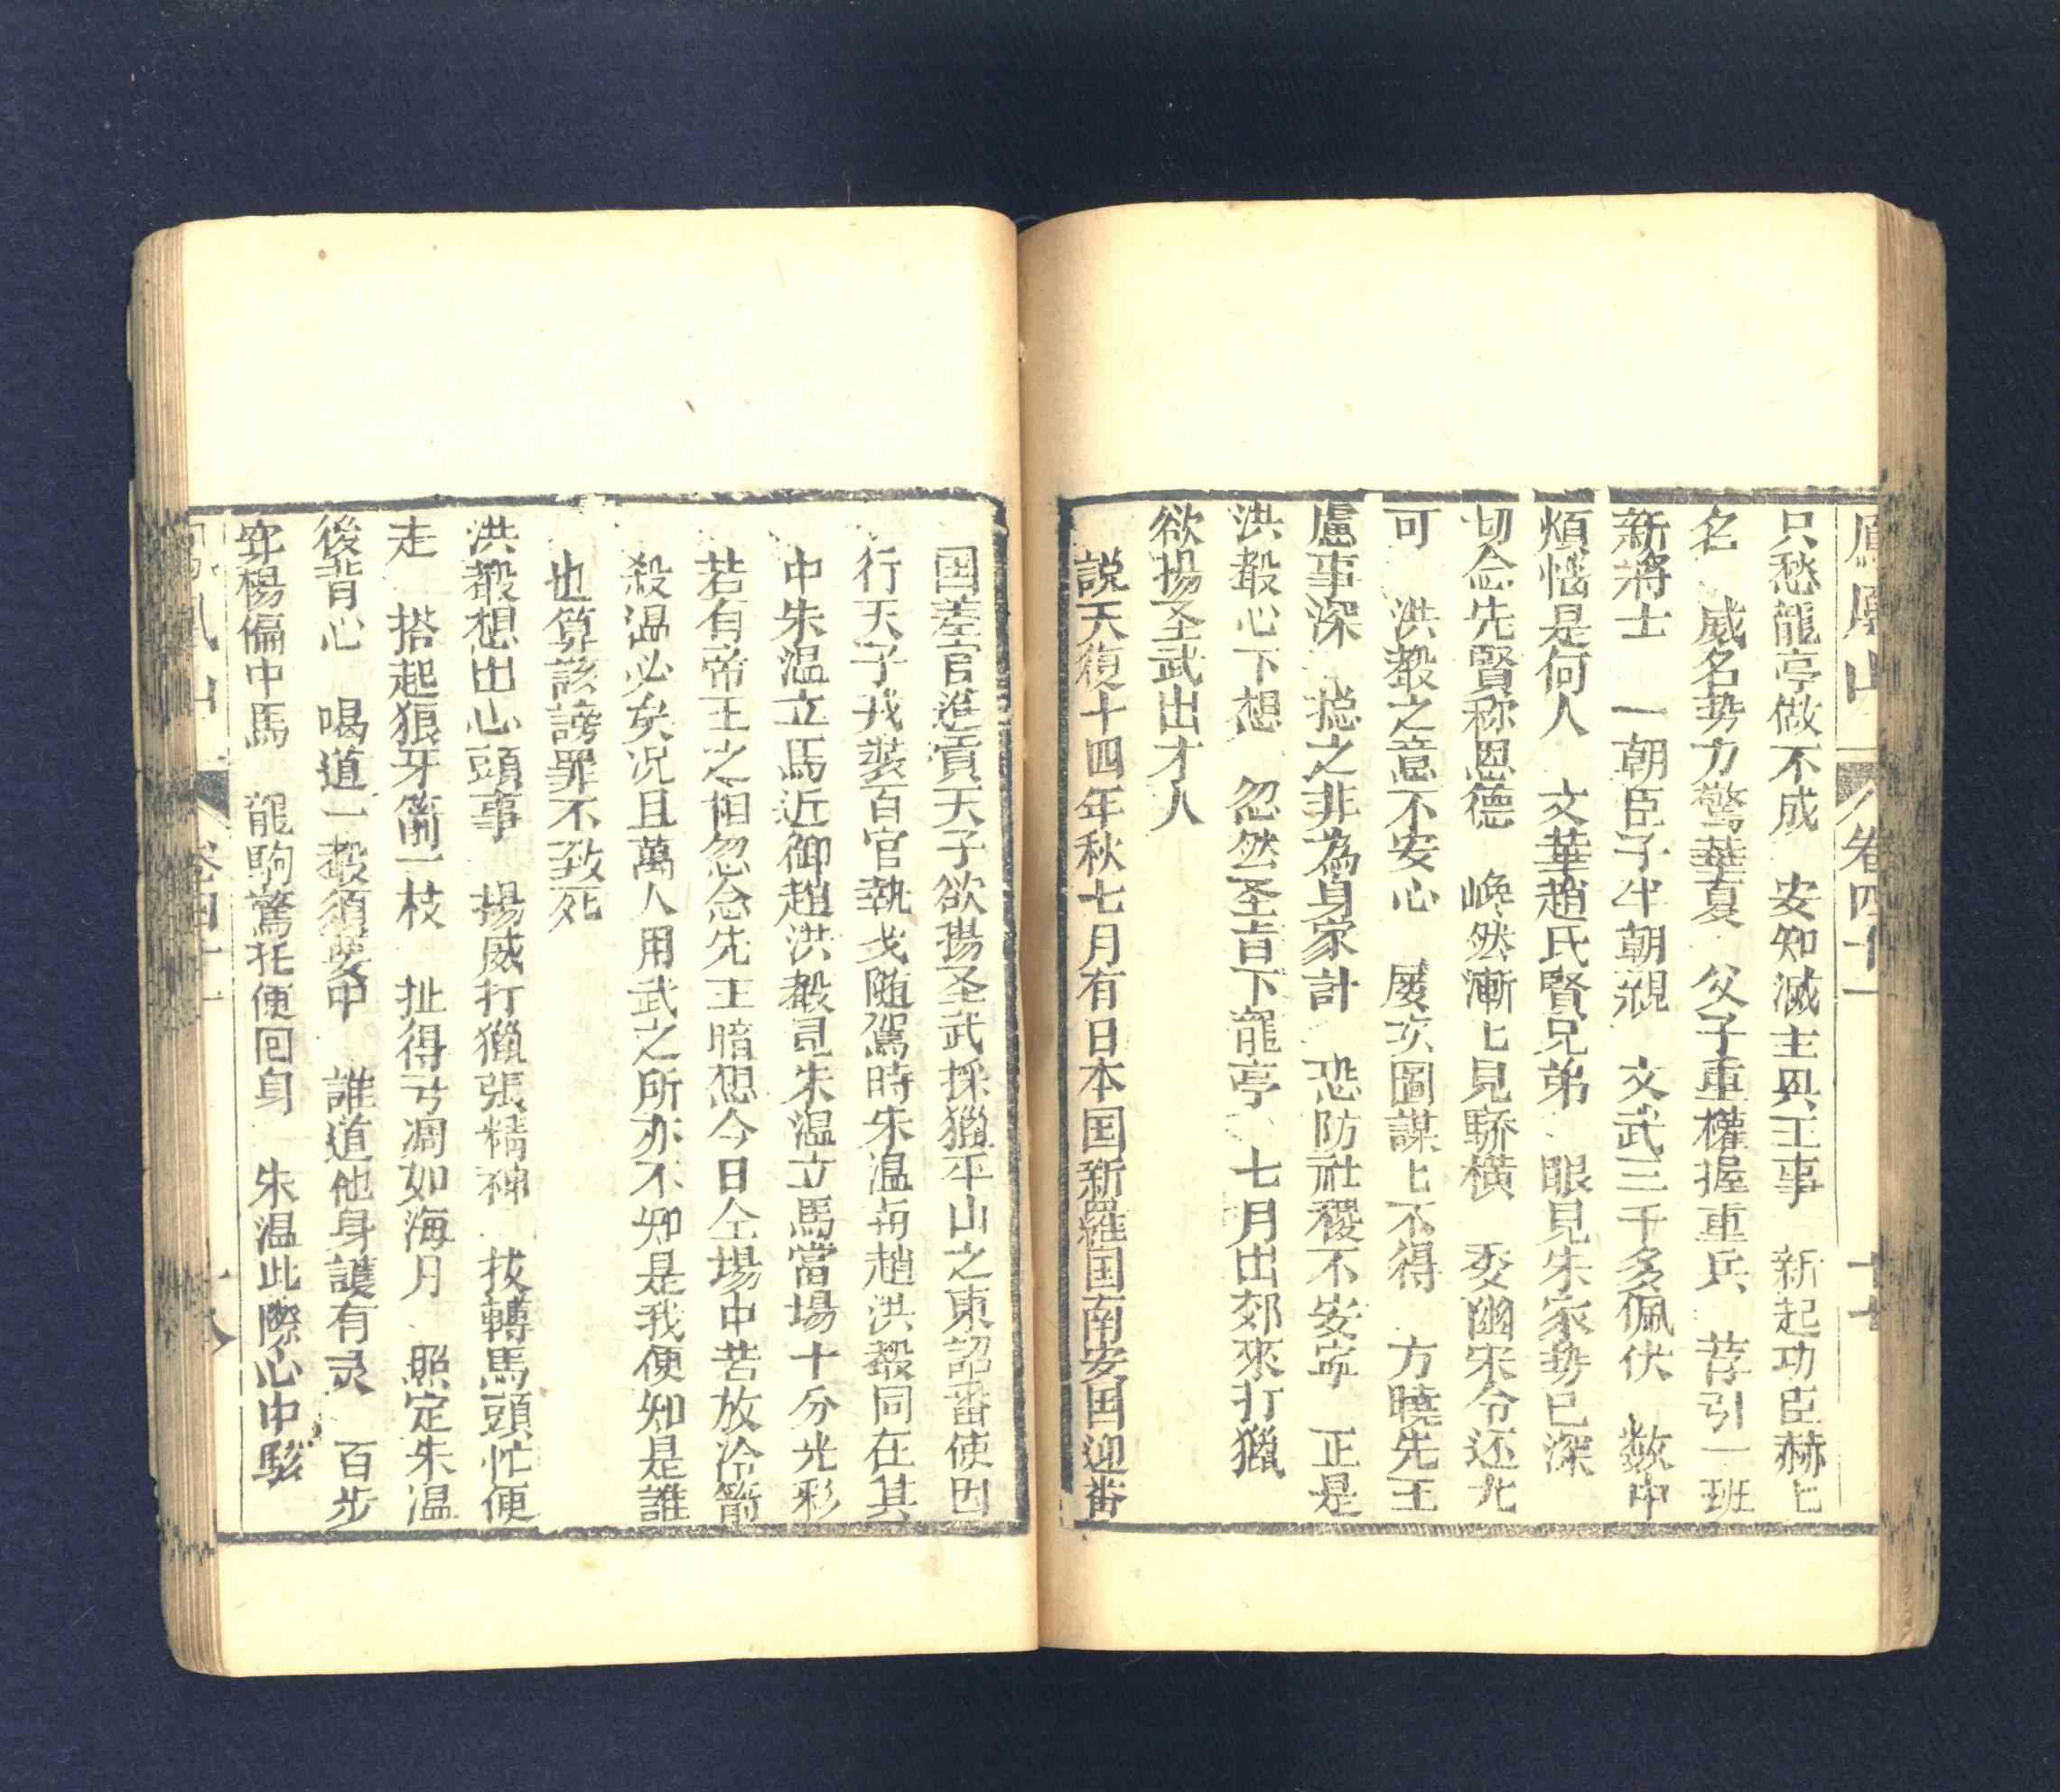 鳳凰山 卷四十一 十七
只愁龍亭做不成 安知滅主與王事 新起功臣赫〻
名 威名势力驚華夏 父子重權握重兵 荐引一班
新將士 一朝臣子半朝親 文武三千多佩伏 数中
煩惱是何人 文華趙氏賢兄弟 眼見朱家势已深
切念先賢称恩德 喚然漸〻見驕橫 委幽宋令还尤
可 洪毅之意不安心 屡次圖謀〻不得 方曉先王
慮事深 摠之非為身家計 恐防社稷不安寜 正是
洪毅心下想 忽然圣旨下龍亭 七月出郊來打獵
欲揚圣武出才人
説天復十四年秋七月有日本国新羅国南安国迎畨
国差官進貢天子欲揚圣武採獵平山之東詔畨使因
行天子戎裝百官執戈随駕時朱温與趙洪毅同在其
中朱温立馬近御趙洪毅見朱温立馬當場十分光彩
若有帝王之相忽念先王暗想今日仝場中若放冷箭
殺温必矣况且萬人用武之所亦不知是我便知是誰
也算該謗罪不致死
洪毅想出心頭事 揚威打獵張精神 拔轉馬頭忙便
走 搭起狼牙箭一枝 扯得弓凋如海月 照定朱温
後背心 喝道一毅須要中 誰道他身護有灵 百步
穿楊偏中馬 龍駒驚托便回身 朱温此際心中駭
鳳凰山 卷四十一 十八